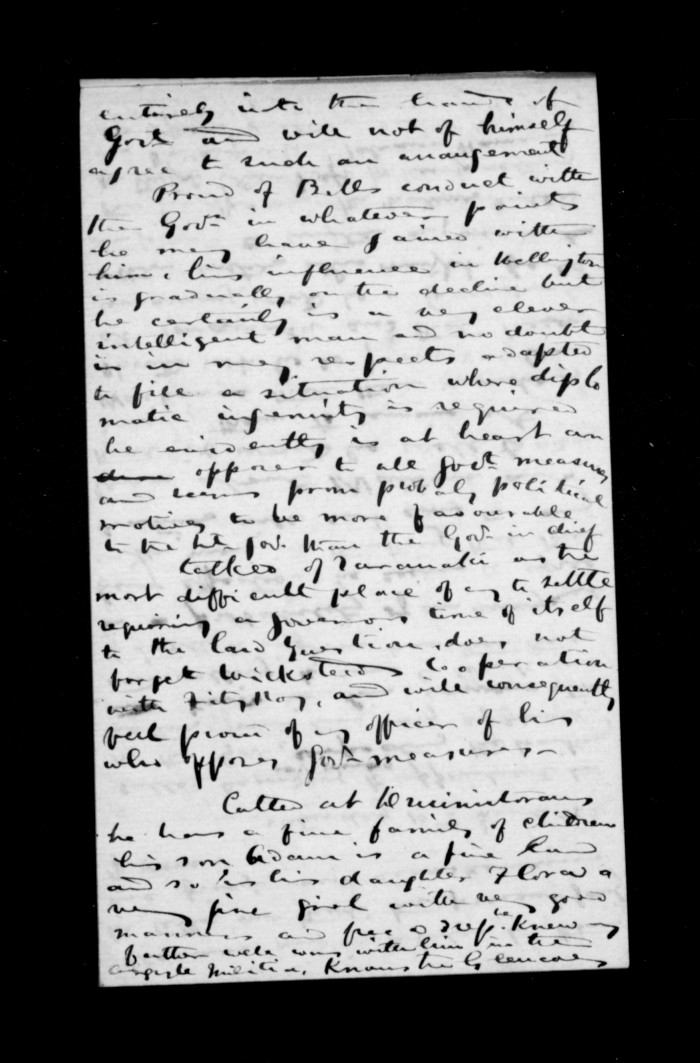 entirely into the hands of
Govt and will not of himself
agree to such an arrangement
Proud of Bells conduct with
the Govr in whatever points
he may have gained with
him; his influence in Wellington
is gradually on the decline but
he certainly is a very clever
intelligent man and no doubt
is in many respects adapted
to fill a situation where diplo
matic ingenuity is required
he evidently is at heart an
opposer to all Govt measures
and seems from probably political
motives to be more favourable
to the Govr than the Govr in chief
talked of Taranaki as the
most difficult place of any to settle
requiring a governors time of itself
to the land Question, does not
forget Wicksteeds Cooperation
with FitzRoy, and will consequently
feel proud of any officer of his
who opposes Govt measures
Called at
he has a fine family of children
his son Adam is a fine lad
and so is his daughter Flora a
very fine girl with very good
manners and free & Knew my
father well was with him in the
Argyle Militia, Knows the Glencoes